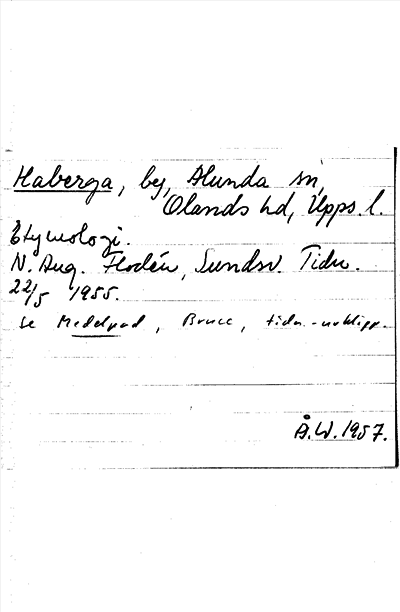 Haberga, by, Alunda sn,
Olands hd, Upps. l.
Etymologi.
N. Aug. Flodén, Sundsv. Tidn.
22/5 1955.
se Medelpad, , tidn.-urklipp.
Å.W. 1957.